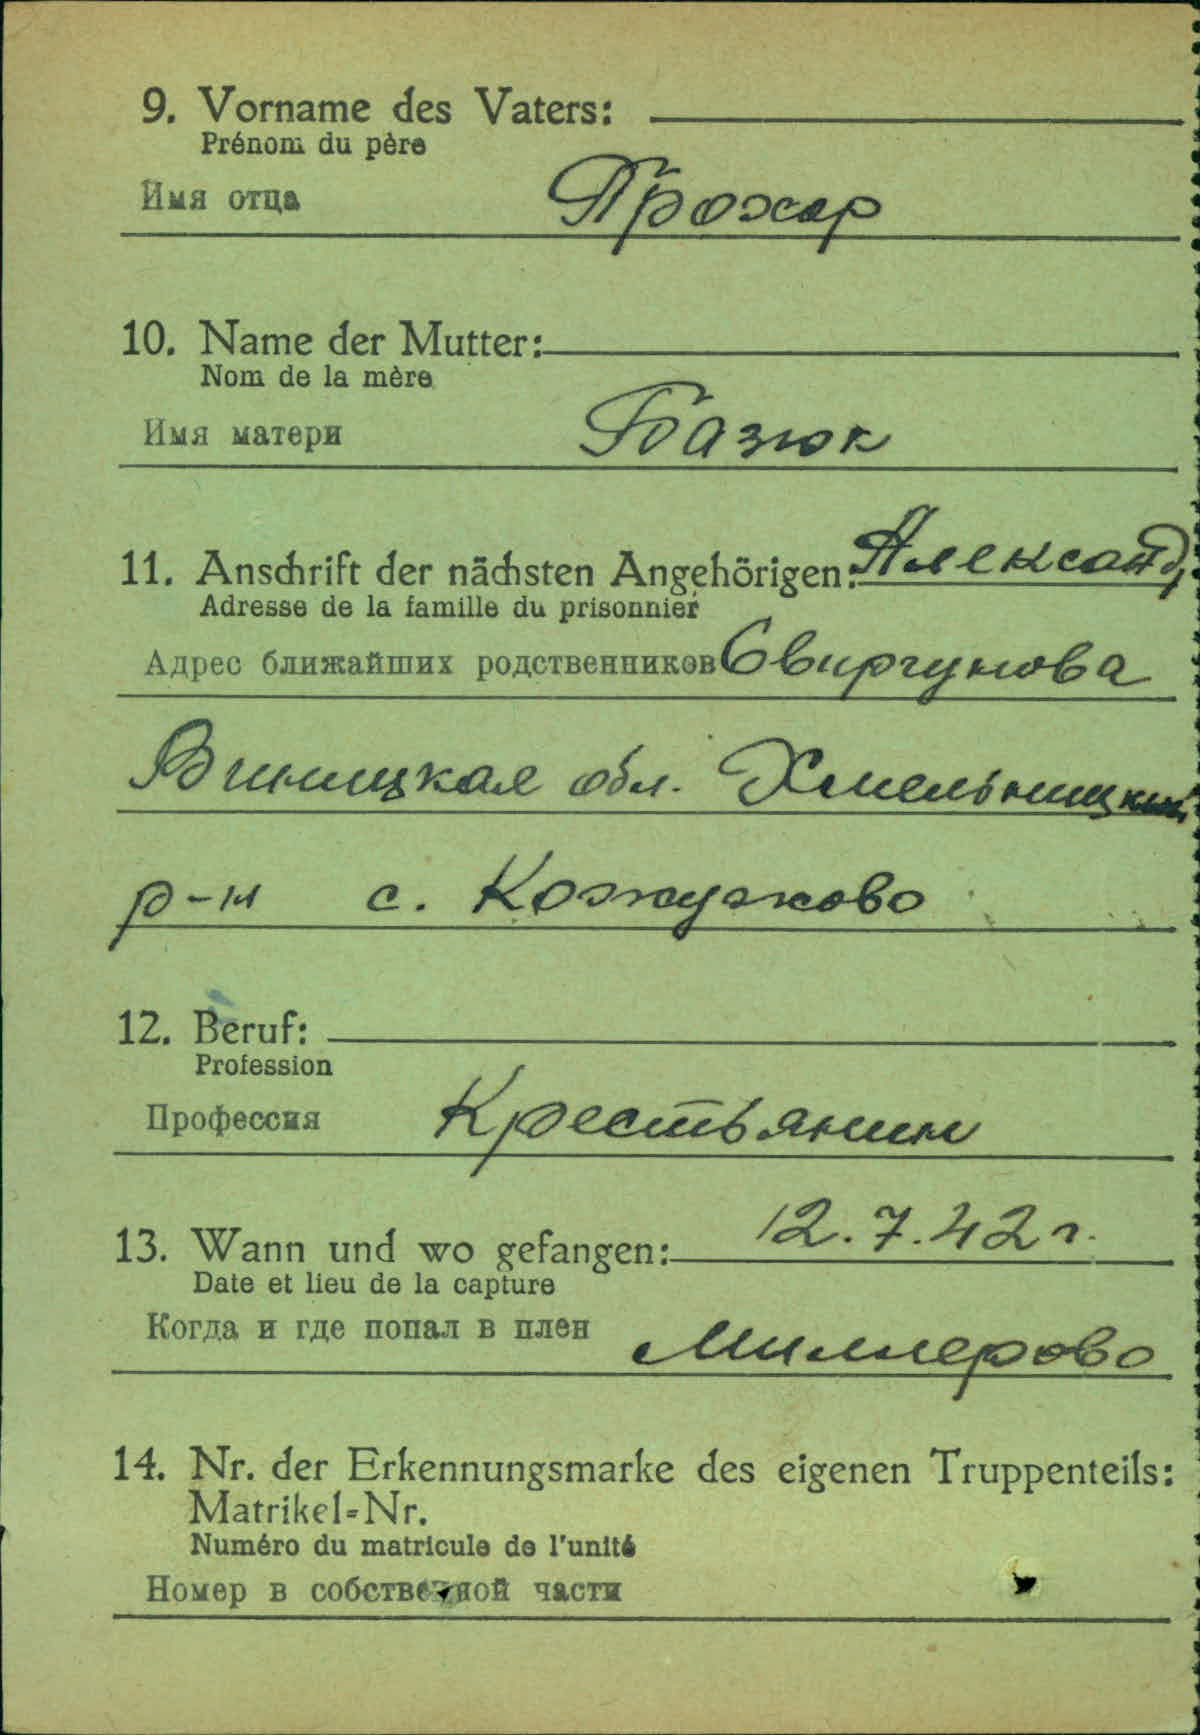 9. Vorname des Vaters:
Prénom du père
Имя отца Прохор
10. Name der Mutter:
Nom de la mère
Имя матери Базюк
11. Anschrift der nächsten Angehörigen: Александ,
Adresse de la famille du prisonnier
Адрес ближайших родственников Свиргунова
Виницкая обл. Хмельницкий
р-н с. Кожухково
12. Beruf:
Profession
Профессия Крестьянин
13. Wann und wo gefangen: 12.7.42 г.
Date et lieu de la capture
Когда и где попал в плен Миллерово
14. Nr. der Erkennungsmarke des eigenen Truppenteils:
Matrikel=Nr.
Numéro du matricule de l'unité
Номер в собственной части